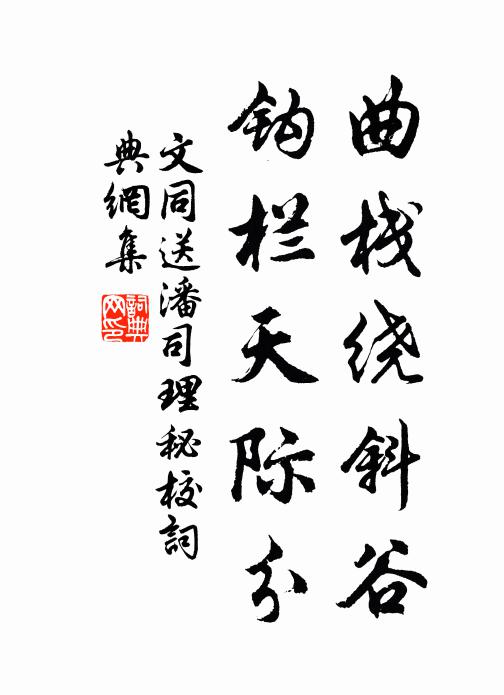 曲栈绕斜谷
钩栏天际分
文同送潘司理秘校詞
典網集
詞典网印